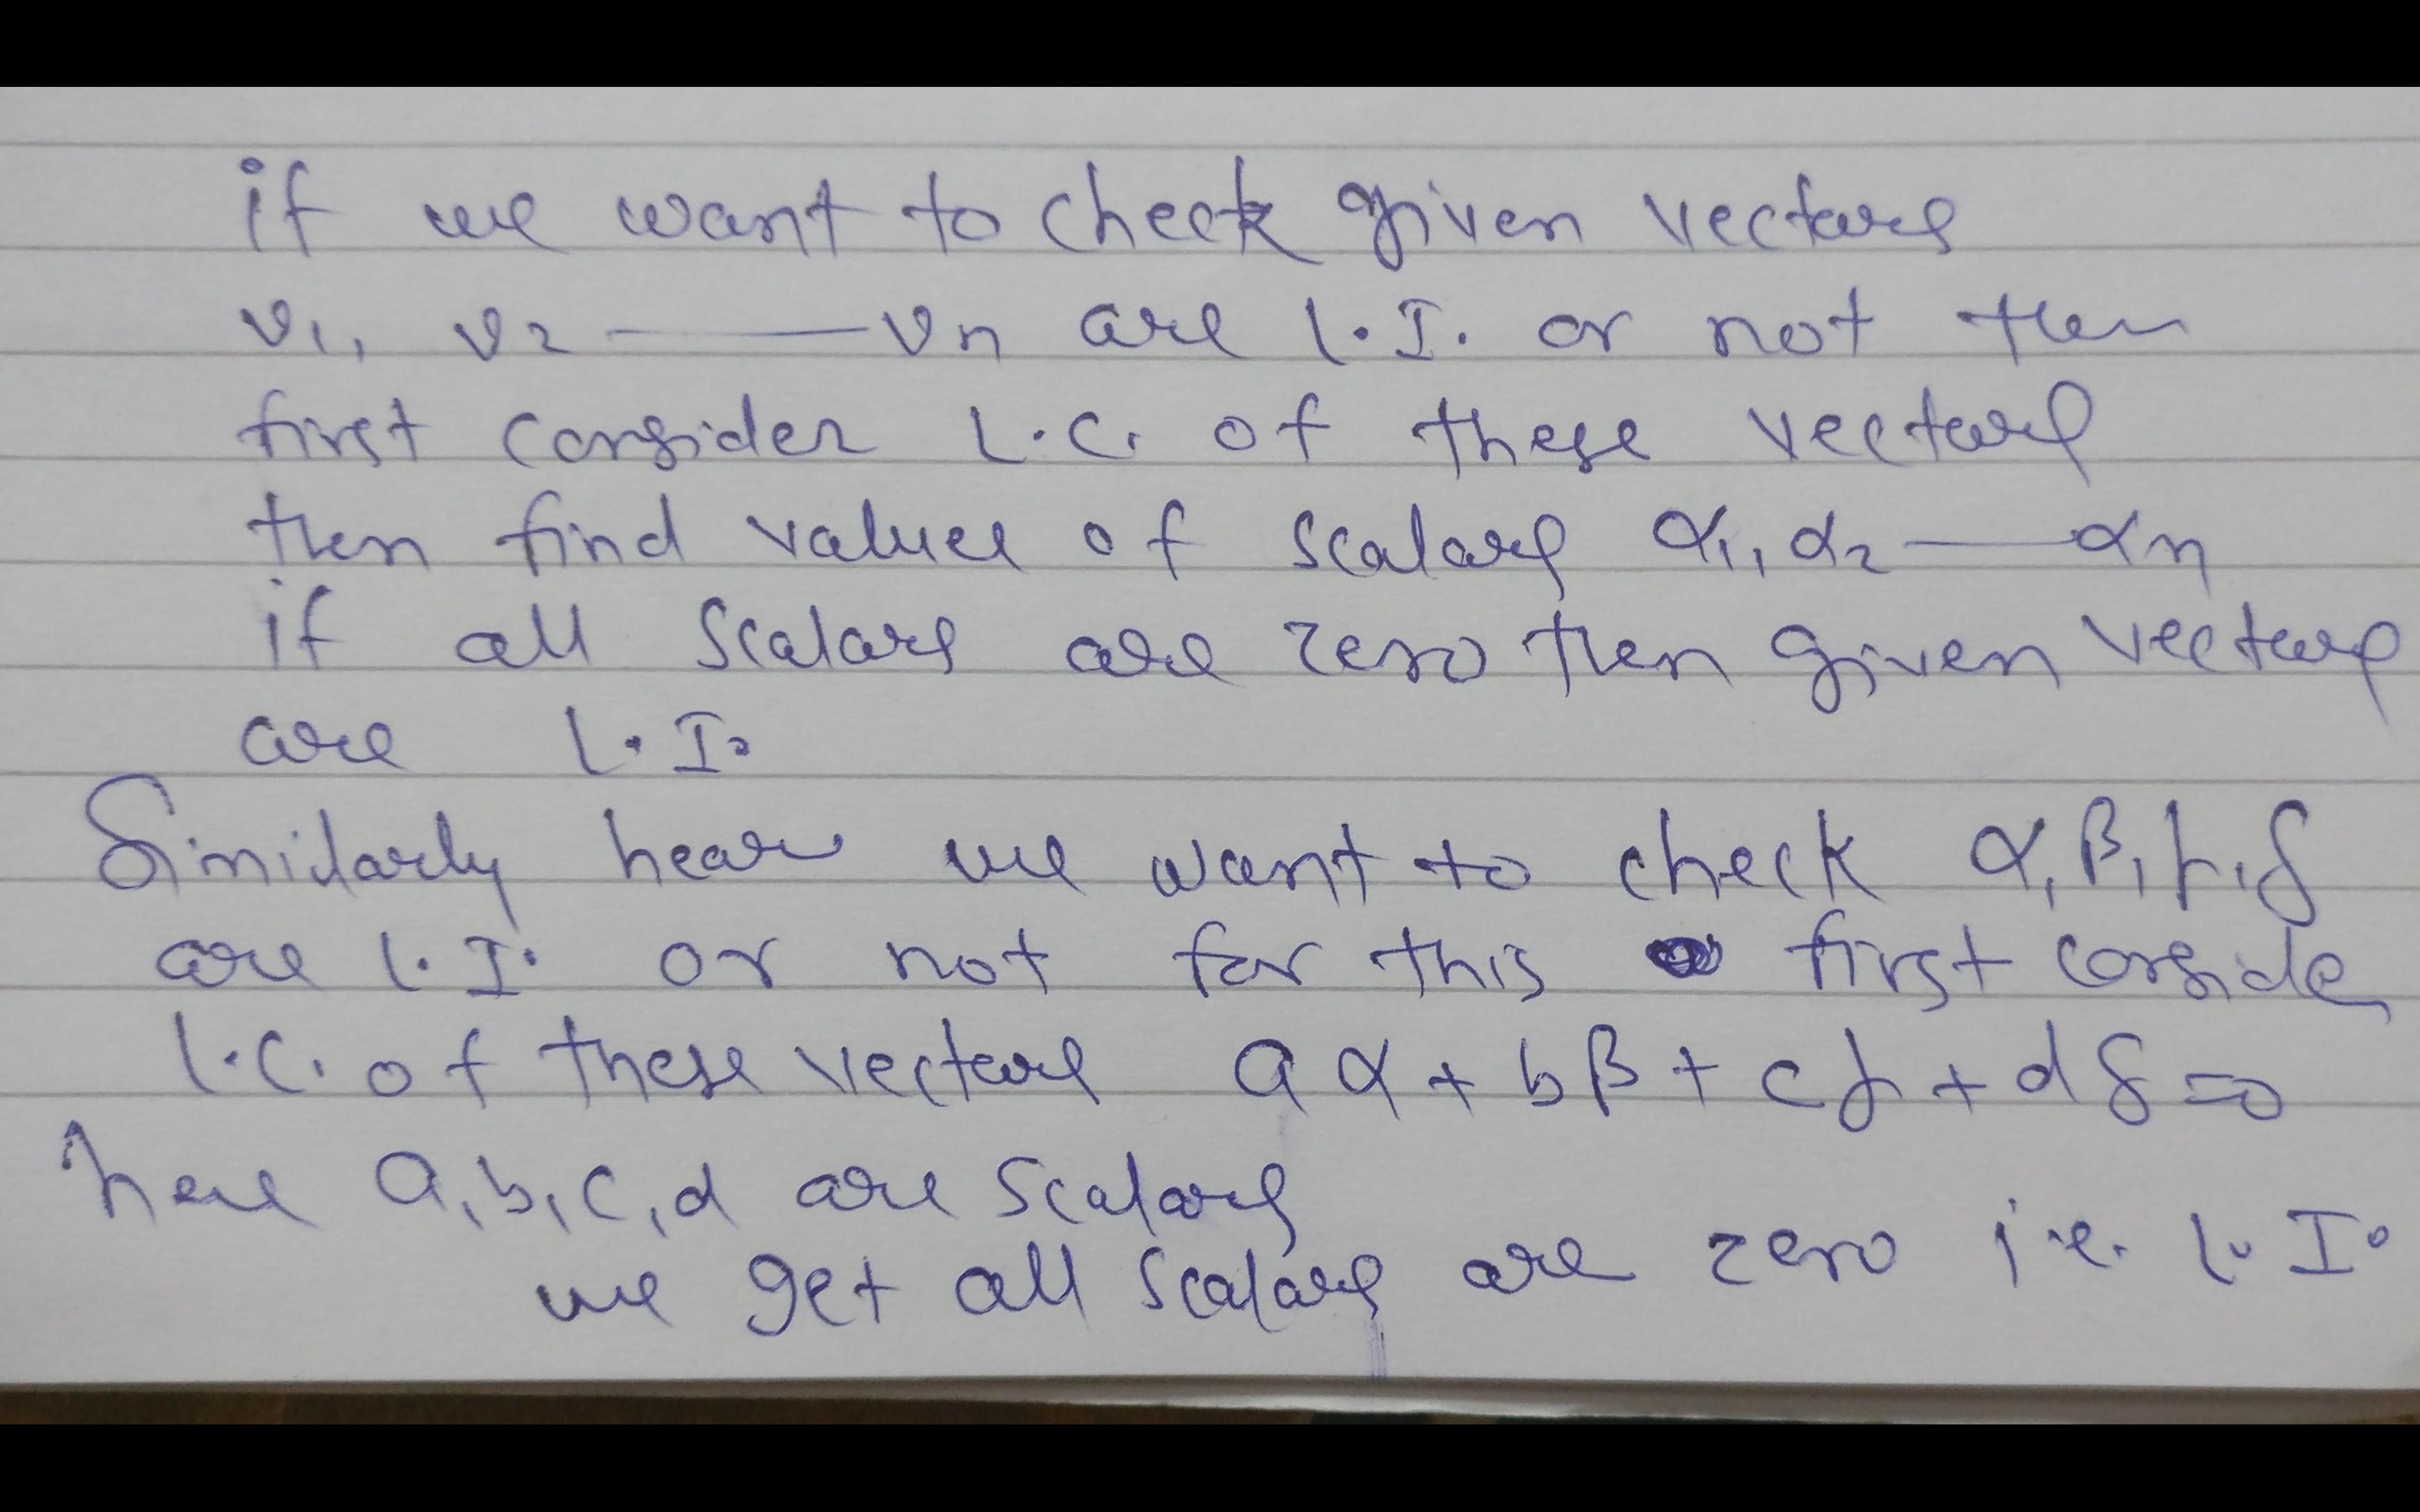 if we want to check given vectors
v1, v2 —— vn are l.I. or not then
first consider L.C. of these vectors
then find values of scalars α1, α2 — αn
if all scalars are zero then given vectors
are l.I.
Similarly hear we want to check α, β, γ, δ
are l.I. or not for this first conside
l.c. of these vectors aα + bβ + cγ + dδ = 0
here a, b, c, d are scalars
we get all scalars are zero i.e. l.I.